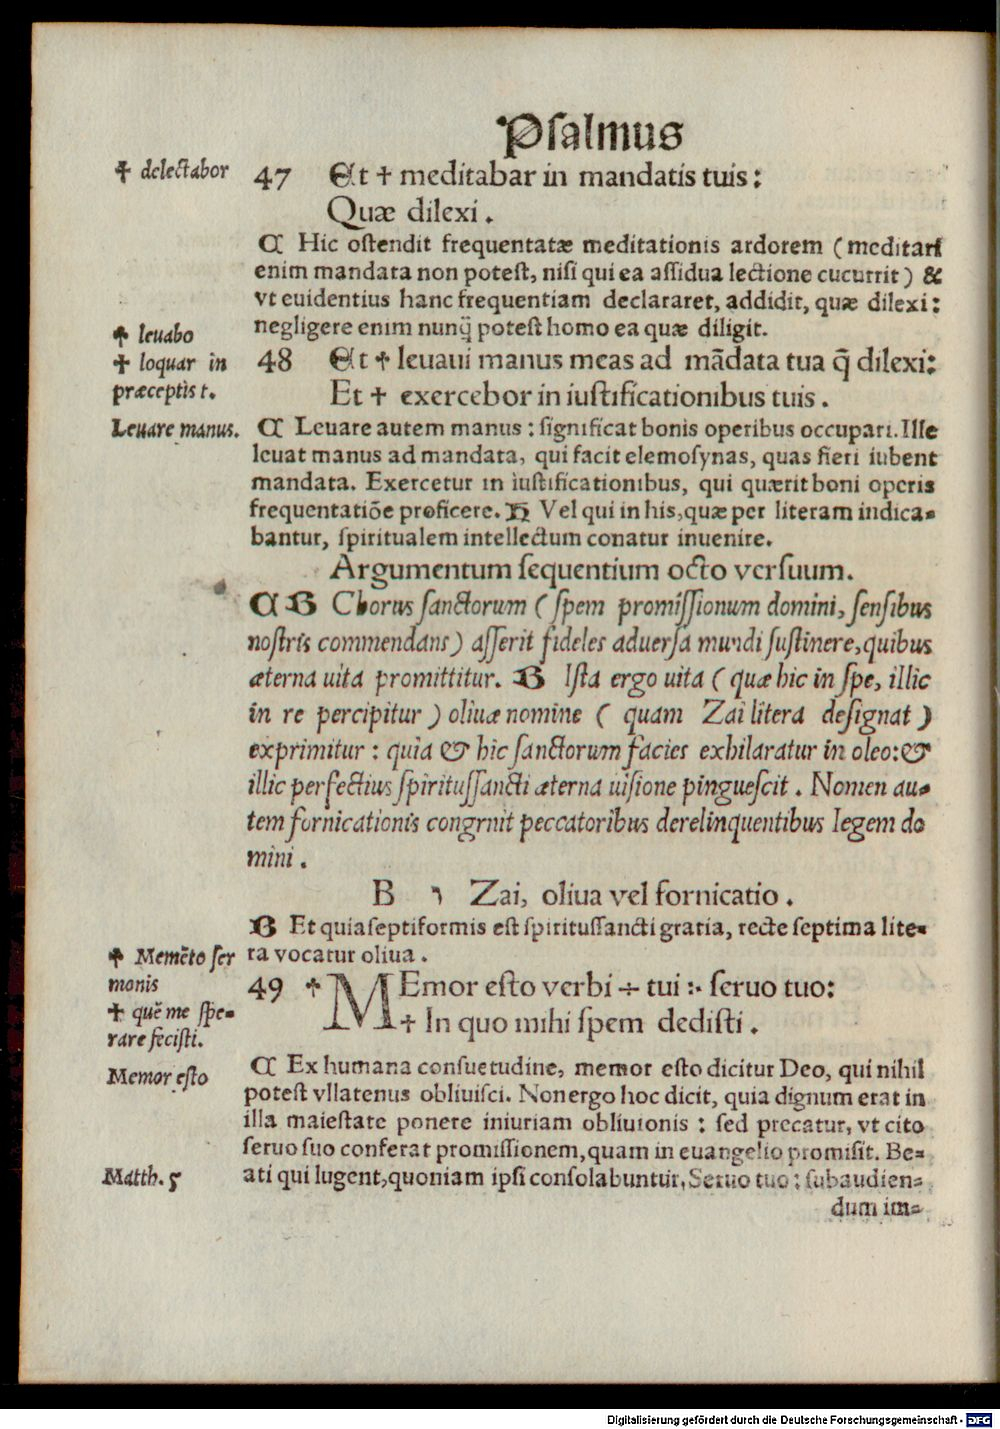 Psalmus
☩ delectabor
47 Et ☩ meditabar in mandatis tuis:
Quæ dilexi.
C Hic ostendit frequentatæ meditationis ardorem (meditari
enim mandata non potest, nisi qui ea assidua lectione cucurrit) &
vt euidentius hanc frequentiam declararet, addidit, quæ dilexi:
negligere enim nunq̃ potest homo ea quæ diligit.
☩ leuabo
☩ loquar in
præceptis t.
48 Et ☩ leuaui manus meas ad mādata tua q̄ dilexi:
Et ☩ exercebor in iustificationibus tuis.
Leuare manus.
C Leuare autem manus: significat bonis operibus occupari. Ille
leuat manus ad mandata, qui facit elemosynas, quas fieri iubent
mandata. Exercetur in iustificationibus, qui quærit boni operis
frequentatiõe proficere. H Vel qui in his, quæ per literam indica-
bantur, spiritualem intellectum conatur inuenire.
Argumentum sequentium octo versuum.
C B Chorus sanctorum (spem promissionum domini, sensibus
nostris commendans) asserit fideles aduersa mundi sustinere, quibus
æterna uita promittitur. B Ista ergo uita (quæ hic in spe, illic
in re percipitur) oliuæ nomine (quam Zai litera designat)
exprimitur: quia & hic sanctorum facies exhilaratur in oleo: &
illic perfectius spiritussancti æterna uisione pinguescit. Nomen au-
tem fornicationis congrnit peccatoribus derelinquentibus legem do
mini.
B ו Zai, oliua vel fornicatio.
B Et quia septiformis est spiritussancti gratia, recte septima lite-
ra vocatur oliua.
☩ Memēto ser
monis
☩ quē me spe-
rare fecisti.
49 ☩ MEmor esto verbi ÷ tui :· seruo tuo:
☩ In quo mihi spem dedisti.
Memor esto
C Ex humana consuetudine, memor esto dicitur Deo, qui nihil
potest vllatenus obliuisci. Non ergo hoc dicit, quia dignum erat in
illa maiestate ponere iniuriam obliuionis: sed precatur, vt cito
seruo suo conferat promissionem, quam in euangelio promisit. Be-
Matth. 5
ati qui lugent, quoniam ipsi consolabuntur. Seruo tuo: subaudien-
dum im-
Digitalisierung gefördert durch die Deutsche Forschungsgemeinschaft - DFG